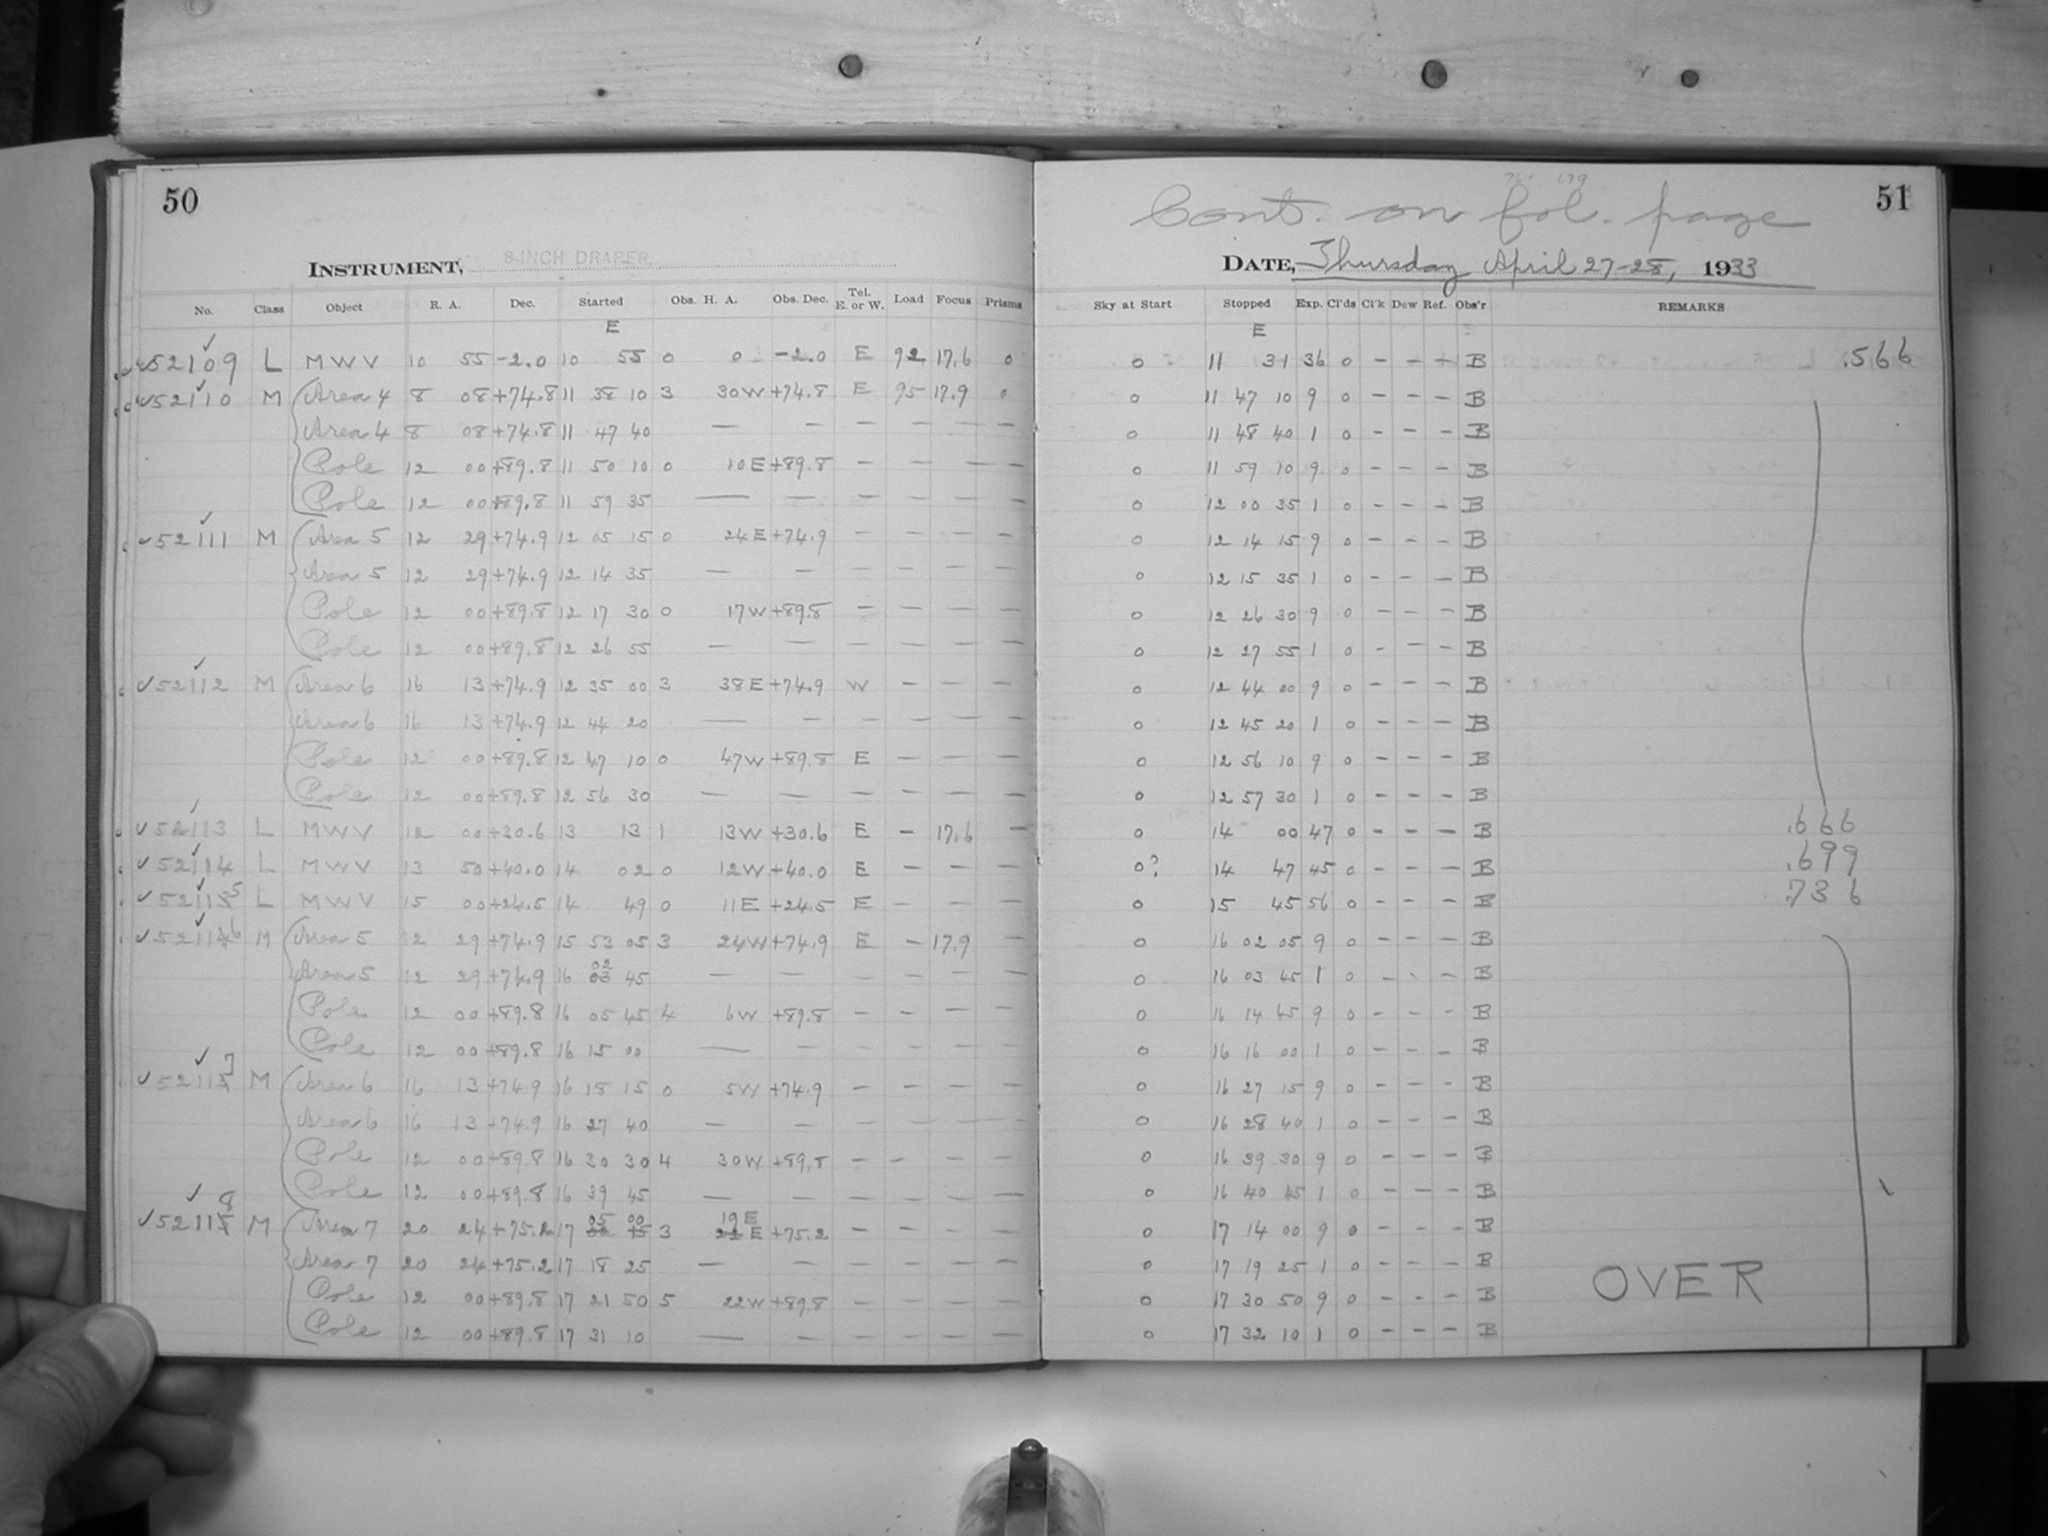 50
INSTRUMENT, 8-INCH DRAPER.
No. Class Object R. A. Dec. Started Obs. H. A. Obs. Dec. Tel. E. or W. Load Focus Prisms
E
52109 L MWV 10 55 -2.0 10 55 0 0 -2.0 E 92 17.6 0
52110 M Area 4 8 08 +74.8 11 38 10 3 30W +74.8 E 95 17.9 0
Area 4 8 08 +74.8 11 47 40 — — — — — —
Pole 12 00 +89.8 11 50 10 0 10E +89.8 — — — —
Pole 12 00 +89.8 11 59 35 — — — — — —
52111 M Area 5 12 29 +74.9 12 05 15 0 24E +74.9 — — — —
Area 5 12 29 +74.9 12 14 35 — — — — — —
Pole 12 00 +89.8 12 17 30 0 17W +89.8 — — — —
Pole 12 00 +89.8 12 26 55 — — — — — —
52112 M Area 6 16 13 +74.9 12 35 00 3 38E +74.9 W — — —
Area 6 16 13 +74.9 12 44 20 — — — — — —
Pole 12 00 +89.8 12 47 10 0 47W +89.8 E — — —
Pole 12 00 +89.8 12 56 30 — — — — — —
52113 L MWV 12 00 +30.6 13 13 1 13W +30.6 E — 17.6 —
52114 L MWV 13 50 +40.0 14 02 0 12W +40.0 E — — —
52115 L MWV 15 00 +24.5 14 49 0 11E +24.5 E — — —
52116 M Area 5 12 29 +74.9 15 53 05 3 24W +74.9 E — 17.9 —
Area 5 12 29 +74.9 16 02 45 — — — — — —
Pole 12 00 +89.8 16 05 45 4 6W +89.8 — — — —
Pole 12 00 +89.8 16 15 00 — — — — — —
52117 M Area 6 16 13 +74.9 16 18 15 0 5W +74.9 — — — —
Area 6 16 13 +74.9 16 27 40 — — — — — —
Pole 12 00 +89.8 16 30 30 4 30W +89.8 — — — —
Pole 12 00 +89.8 16 39 45 — — — — — —
52118 M Area 7 20 24 +75.2 17 05 00 3 19E +75.2 — — — —
Area 7 20 24 +75.2 17 18 25 — — — — — —
Pole 12 00 +89.8 17 21 50 5 22W +89.8 — — — —
Pole 12 00 +89.8 17 31 10 — — — — — —
51
Cont. on fol. page
DATE, Thursday April 27-28, 1933
Sky at Start Stopped Exp. Cl'ds Cl'k Dew Ref. Obs'r REMARKS
E
0 11 31 36 0 — — — B .566
0 11 47 10 9 0 — — — B
0 11 48 40 1 0 — — — B
0 11 59 10 9 0 — — — B
0 12 00 35 1 0 — — — B
0 12 14 15 9 0 — — — B
0 12 15 35 1 0 — — — B
0 12 26 30 9 0 — — — B
0 12 27 55 1 0 — — — B
0 12 44 00 9 0 — — — B
0 12 45 20 1 0 — — — B
0 12 56 10 9 0 — — — B
0 12 57 30 1 0 — — — B
0 14 00 47 0 — — — B .666
0? 14 47 45 0 — — — B .699
0 15 45 56 0 — — — B .736
0 16 02 05 9 0 — — — B
0 16 03 45 1 0 — — — B
0 16 14 45 9 0 — — — B
0 16 16 00 1 0 — — — B
0 16 27 15 9 0 — — — B
0 16 28 40 1 0 — — — B
0 16 39 30 9 0 — — — B
0 16 40 45 1 0 — — — B
0 17 14 00 9 0 — — — B
0 17 19 25 1 0 — — — B
0 17 30 50 9 0 — — — B
0 17 32 10 1 0 — — — B
OVER